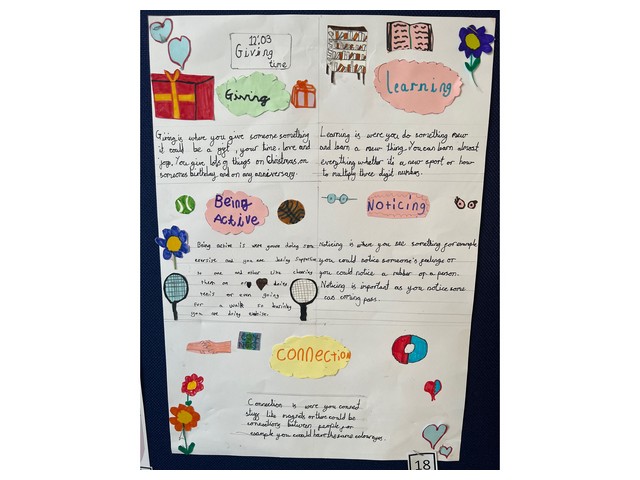 12:03
Giving
time
Giving
Learning
Giving is where you give someone something
it could be a gift, your time, love and
joy. You give lots of things on Christmas, on
someones birthday and on any anniversary.
Learning is were you do something new
and learn a new thing. You can learn almost
everything whether it's a new sport or how
to multiply three digit numbers.
Being
Active
Noticing
Being active is were youre doing some
exersise and you are being supportive
to one and other like cheering
them on or doing
tenis or even going
for a walk so basicly
you are doing exersise.
Noticing is when you see something for example
you could notice someone's feelings or
you could notice a rubber or a person.
Noticing is important as you notice some
cars coming past.
Connection
Connection is were you connect
stuff like magnets or there could be
connections between people for
example you could have the same colour eyes.
18